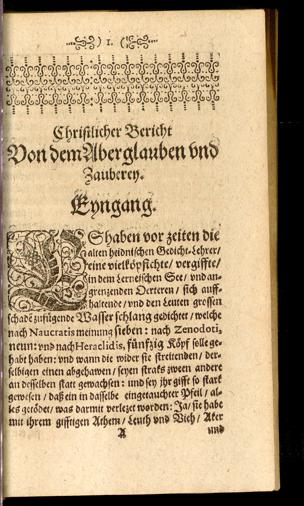 ) 1. (
Christlicher Bericht
Von dem Aberglauben vnd
Zauberey.
Eyngang.
ES haben vor zeiten die
alten heidnischen Gedicht-Lehrer/
eine vielköpfichte/ vergiffte/
in dem Lerneischen See/ vnd an-
grenzenden Oerteren/ sich auff-
haltende/ vnd den Leuten grossen
schade zufügende Wasser schlang gedichtet/ welche
nach Naucratis meinung sieben: nach Zenodoti,
neun: vnd nach Heraclidis, fünfzig Köpf solle ge-
habt haben: vnd wann die wider sie streitenden/ der-
selbigen einen abgehawen/ seyen straks zween andere
an desselben statt gewachsen: und sey ihr gifft so stark
gewesen/ daß ein in dasselbe eingetauchter Pfeil/ al-
les getödet/ was darmit verlezet worden: Ja/ sie habe
mit ihrem gifftigen Athem/ Leuth vnd Vieh/ Aker
A
und